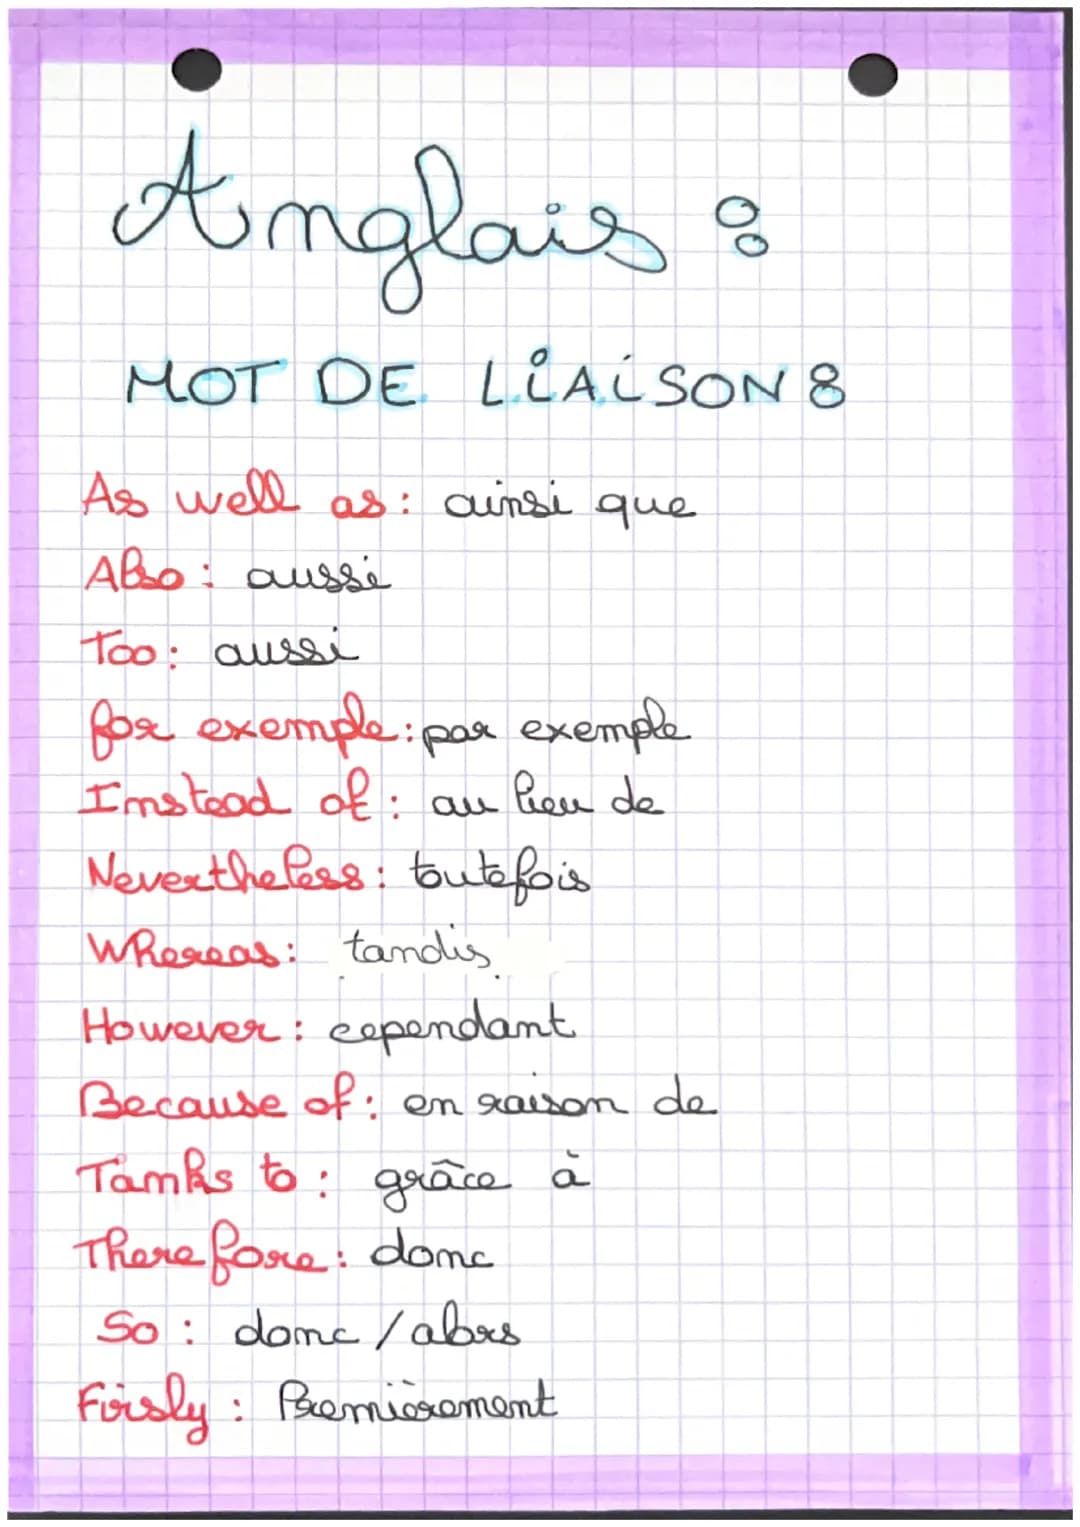 Anglais :
MOT DE LiAiSON :
As well as : ainsi que
Also : aussi
Too : aussi
for exemple : par exemple
Instead of : au lieu de
Nevertheless : toutefois
Whereas : tandis
However : cependant
Because of : en raison de
Tanks to : grâce à
Therefore : donc
So : donc / alors
Firsly : Premièrement